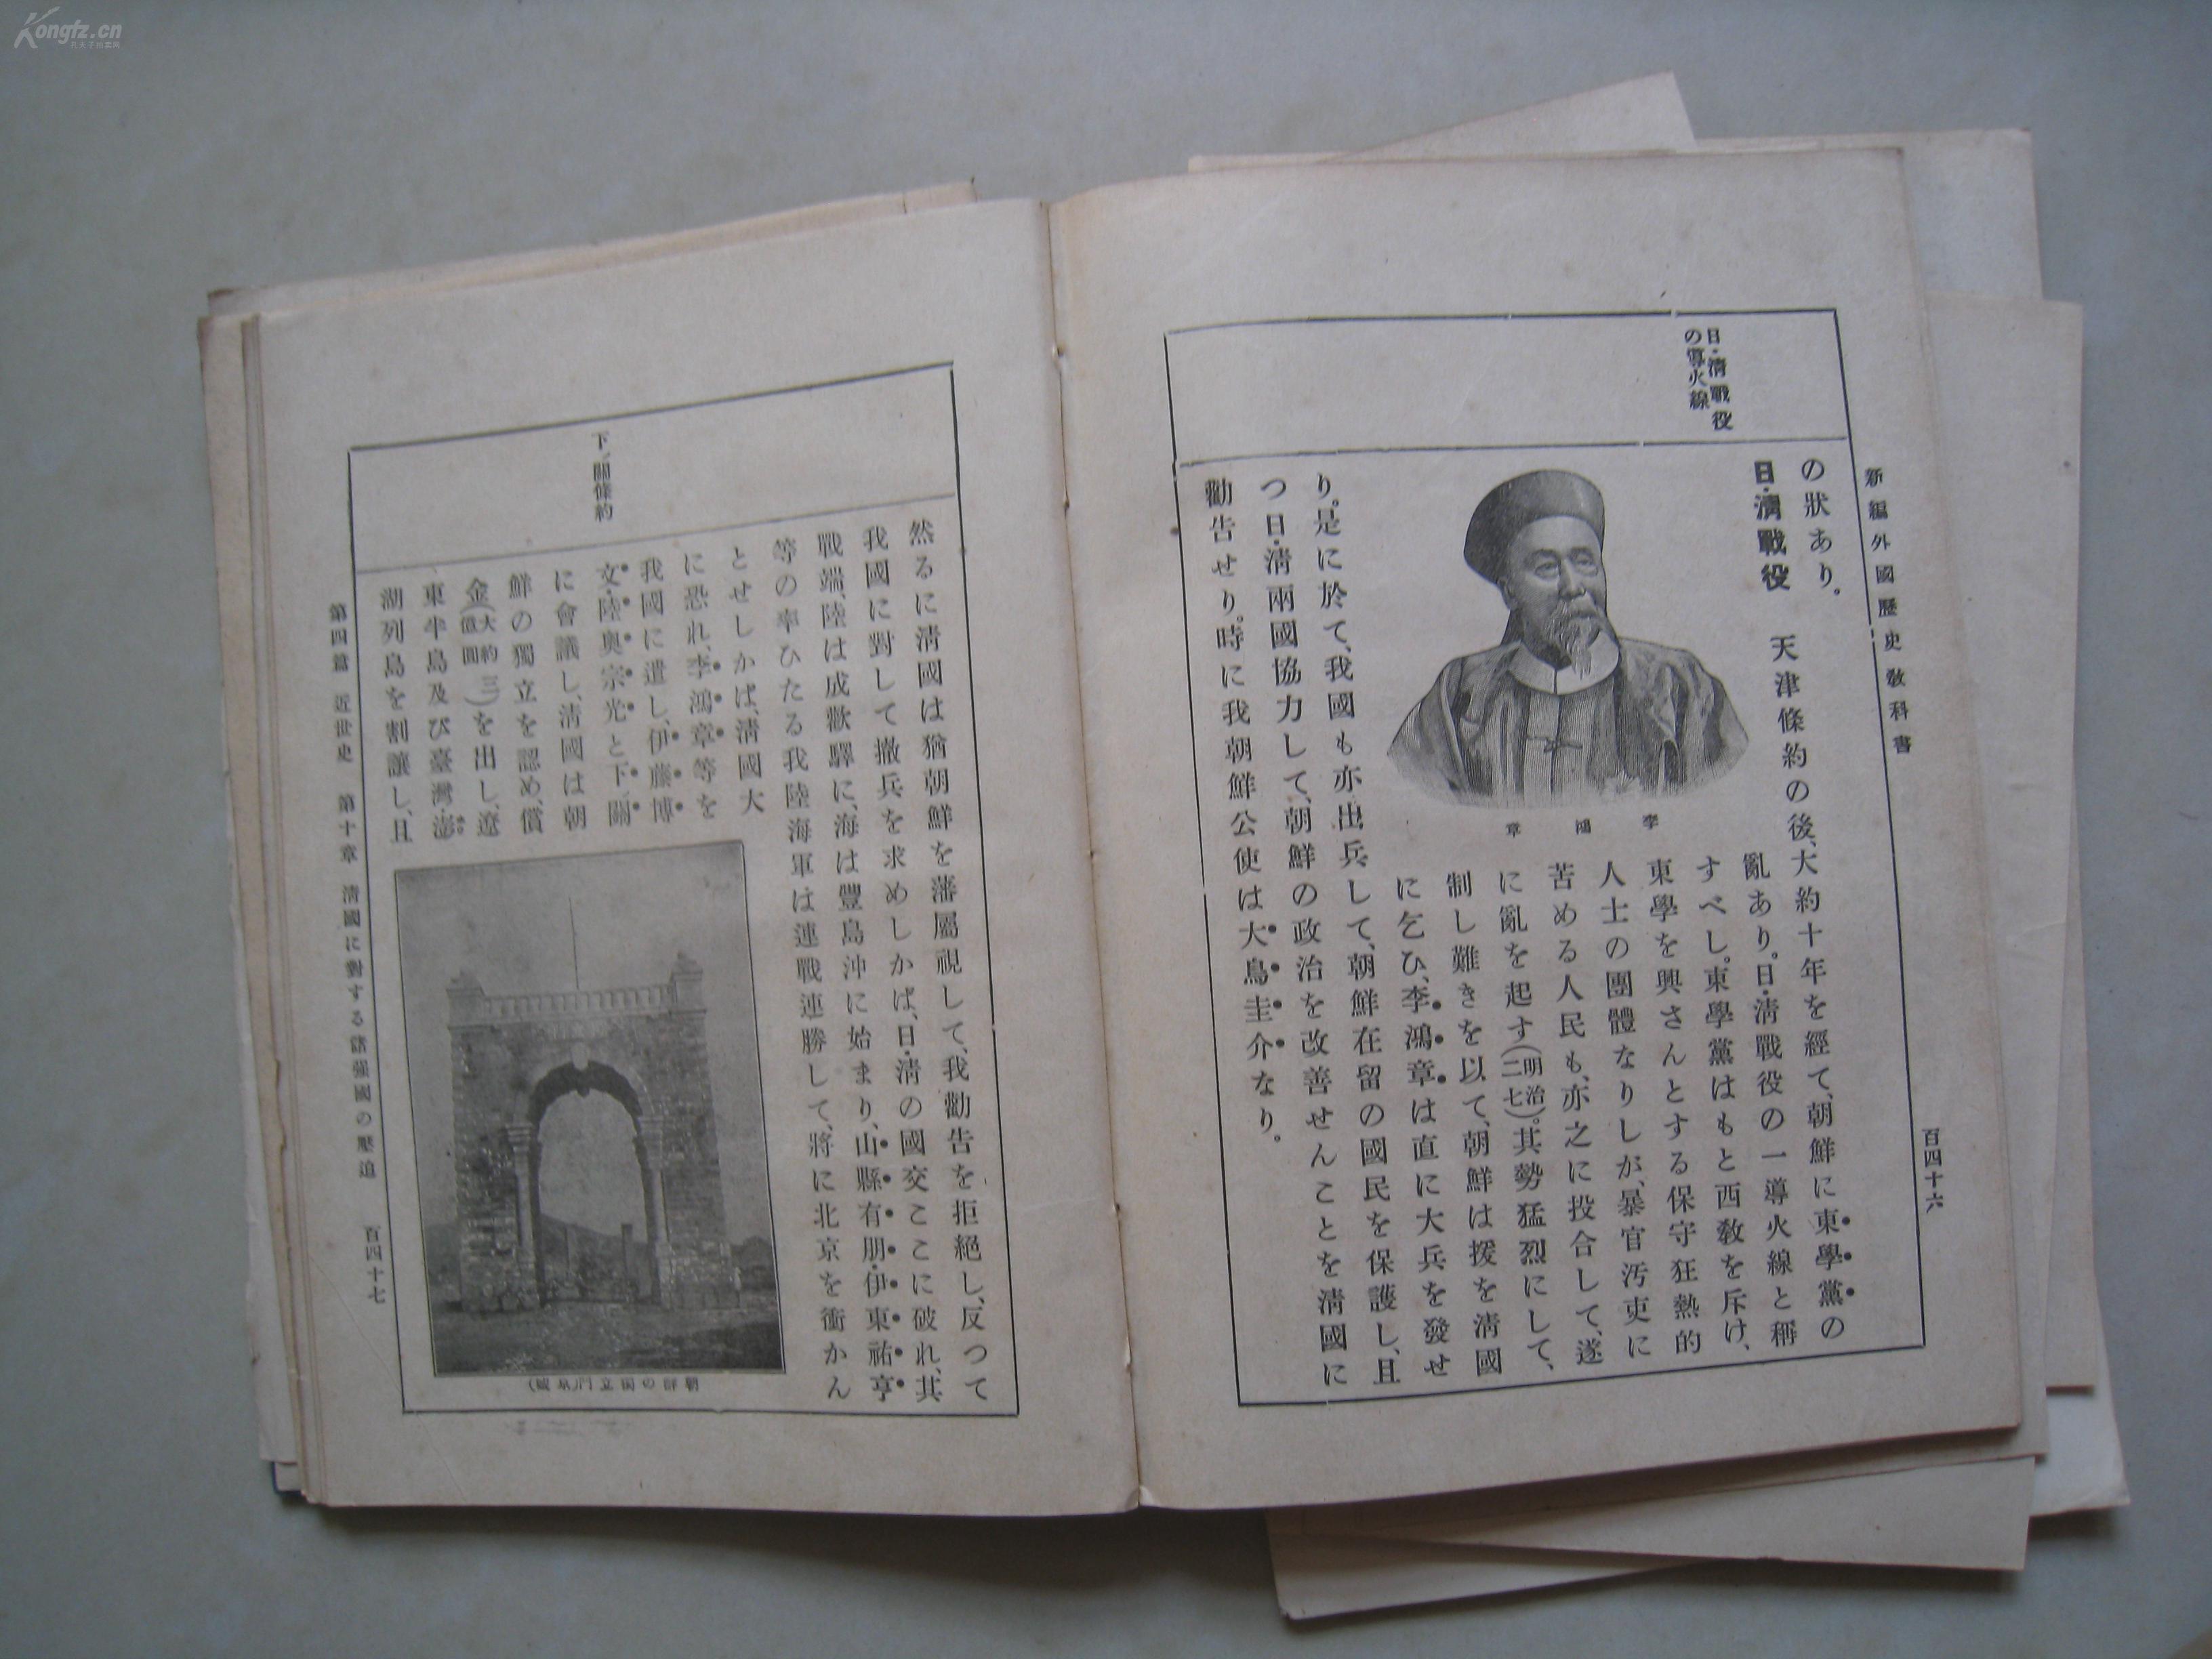 Kongfz.cn
新編外國歷史教科書
百四十六
日・清戰役
の導火線
の狀あり。
日・清戰役　天津條約の後、大約十年を經て、朝鮮に東學黨の
亂あり。日・淸戰役の一導火線と稱
すべし。東學黨はもと西敎を斥け、
東學を興さんとする保守狂熱的
人士の團體なりしが、暴官汚吏に
苦める人民も、亦之に投合して、遂
に亂を起す(明治二七)。其勢猛烈にして、
制し難きを以て、朝鮮は援を淸國
に乞ひ、李鴻章は直に大兵を發せ
り。是に於て、我國も亦出兵して、朝鮮在留の國民を保護し、且
つ日・淸兩國協力して、朝鮮の政治を改善せんことを淸國に
勸告せり。時に我朝鮮公使は大鳥圭介なり。
李鴻章
下ノ關條約
然るに淸國は猶朝鮮を藩屬視して、我勸告を拒絕し、反つて
我國に對して撤兵を求めしかば、日・淸の國交ここに破れ、其
戰端、陸は成歡驛に、海は豐島沖に始まり、山縣有朋・伊東祐亨
等の率ひたる我陸海軍は連戰連勝して、將に北京を衝かん
とせしかば、淸國大
に恐れ、李鴻章等を
我國に遣し、伊藤博
文・陸奧宗光と下ノ關
に會議し、淸國は朝
鮮の獨立を認め、償
金(大約三億圓)を出し、遼
東半島及び臺灣・澎
湖列島を割讓し、且
朝鮮の獨立門(京城)
第四篇　近世史　第十章　淸國に對する諸强國の壓迫
百四十七